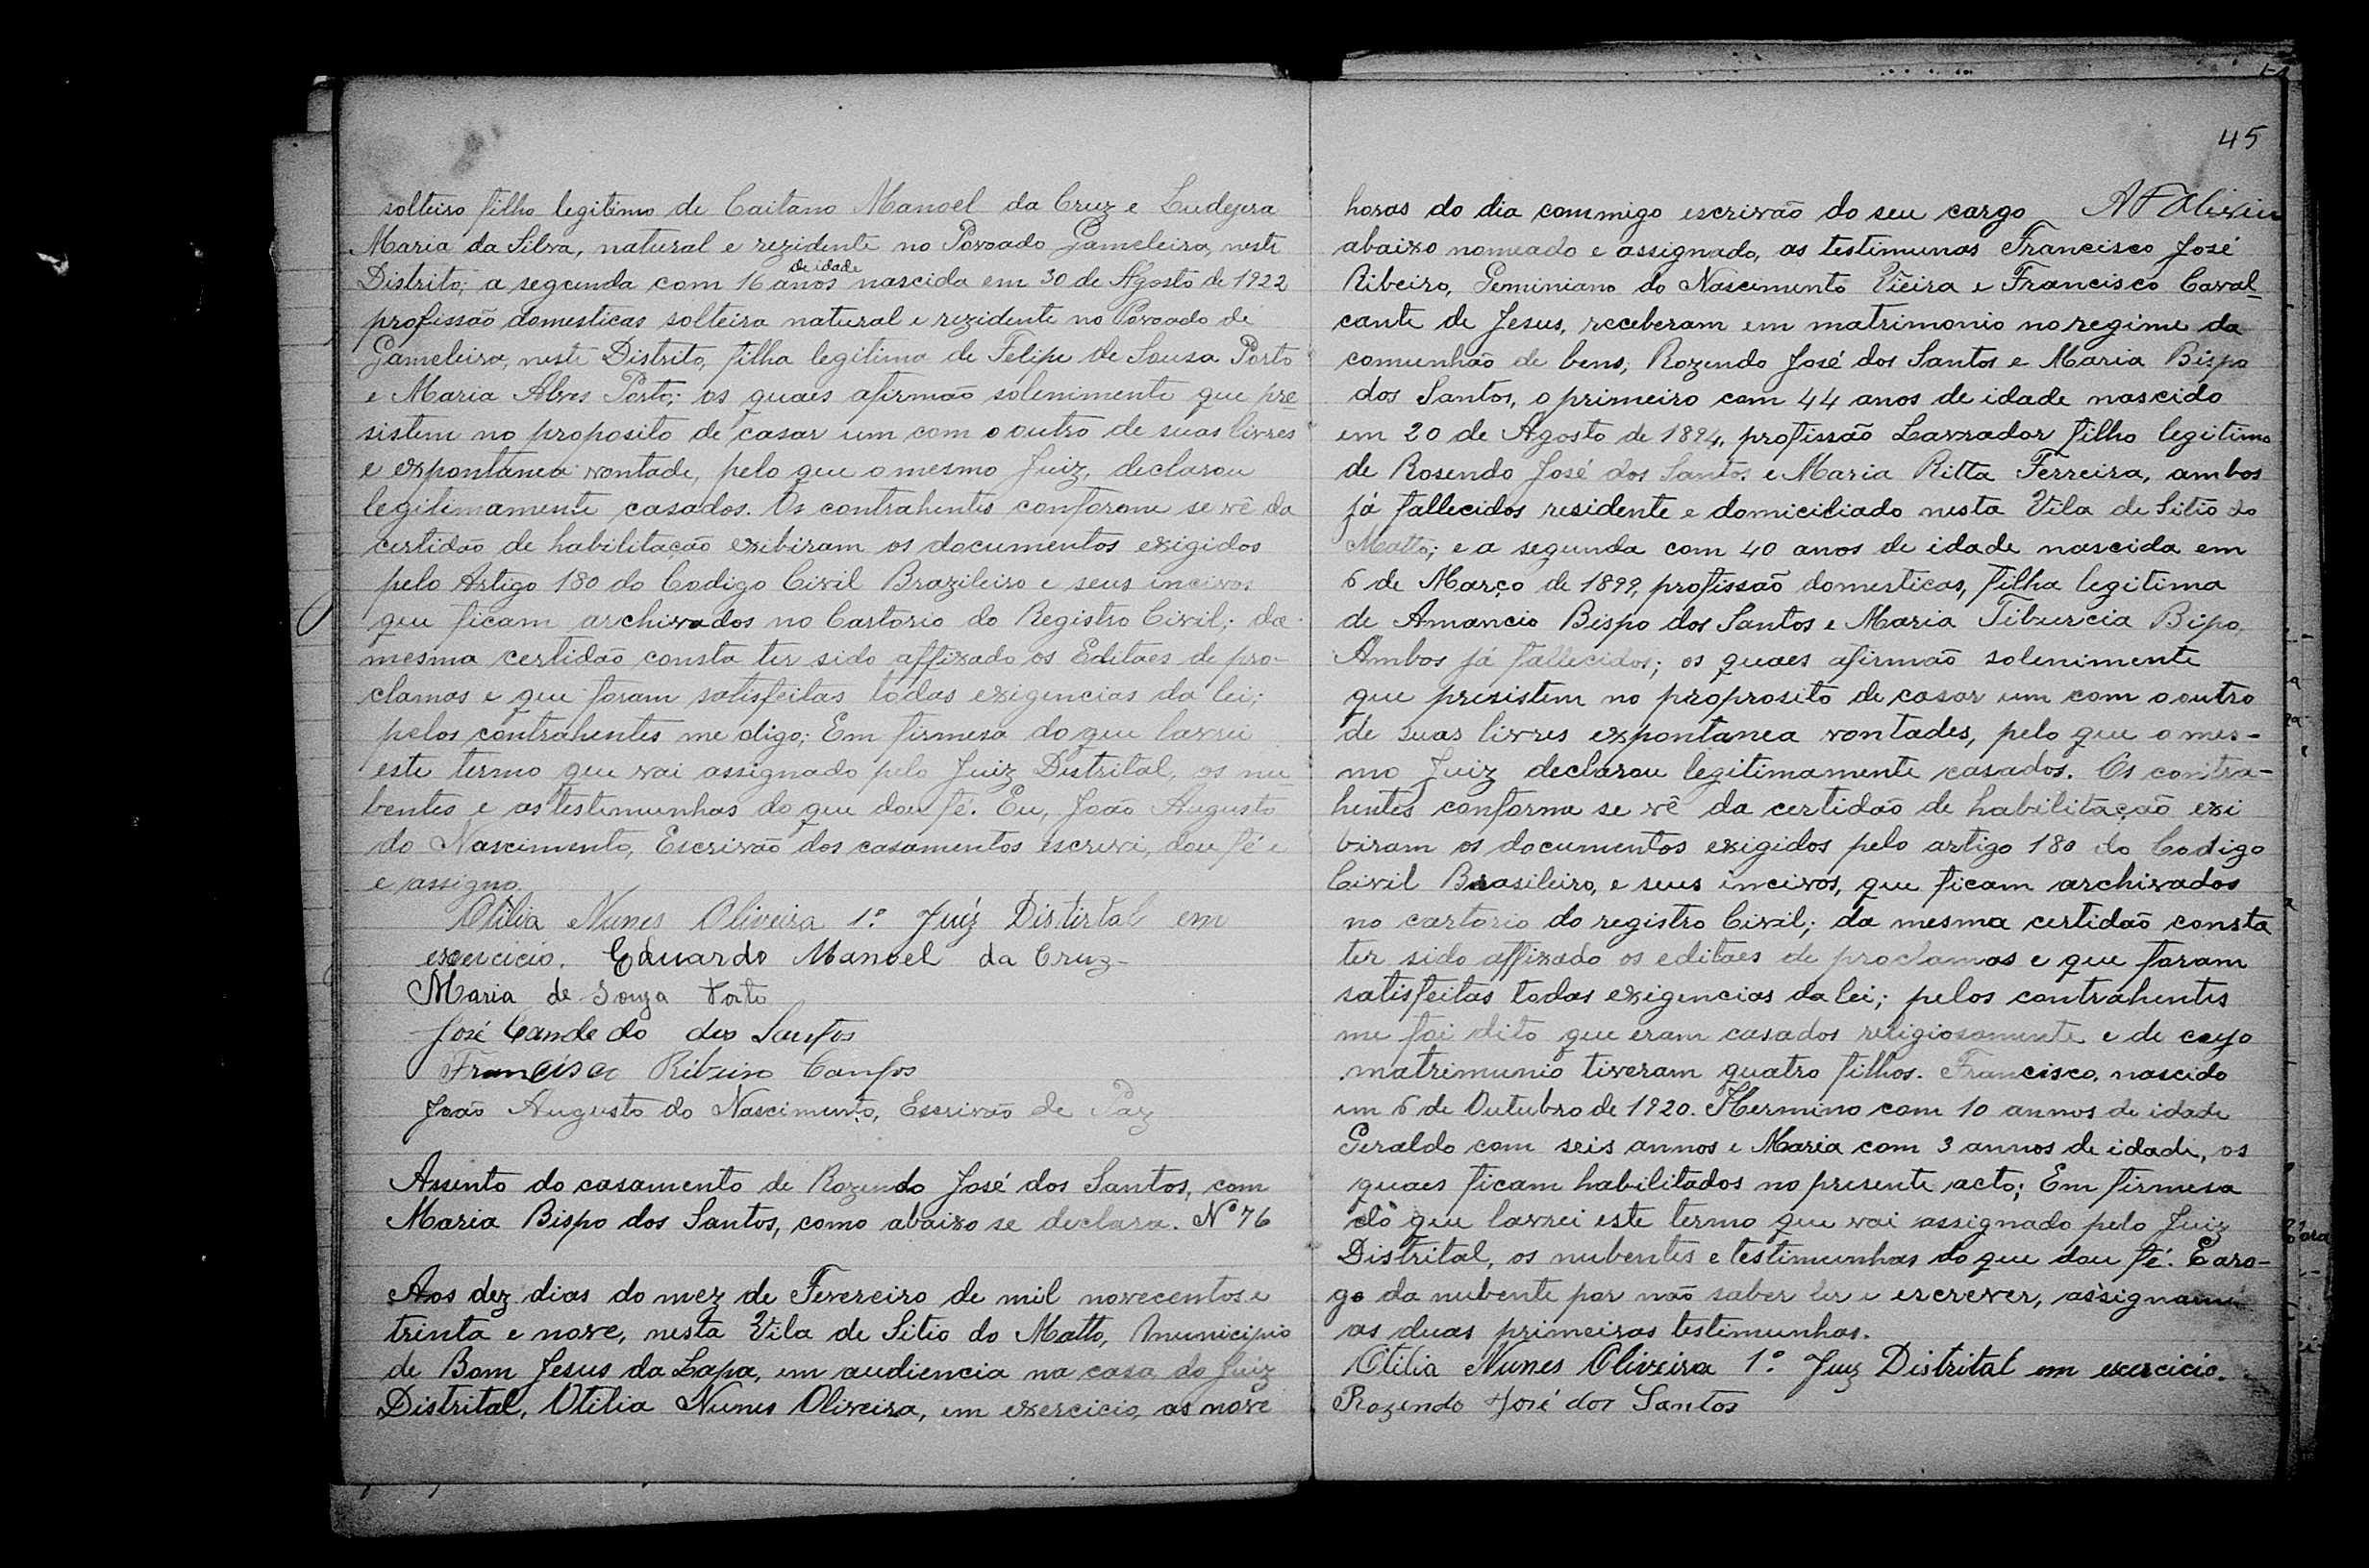 solteiro filho legitimo de Caitano Manoel da Cruz e Ludgera
Maria da Silva, natural e rezidente no Povoado Gameleira, neste
de idade
Distrito; a segunda com 16 anos nascida em 30 de Agosto de 1922
profissão domesticas solteira natural e rezidente no Povoado de
Gameleira, neste Distrito, filha legitima de Felipe de Sousa Porto
e Maria Alves Porto; os quaes afirmão solenimente que pre-
sistem no proposito de casar um com o outro de suas livres
e expontanea vontade, pelo que o mesmo Juiz, declarou
legitimamente casados. Os contrahentes conforme se vê da
certidão de habilitação exibiram os documentos exigidos
pelo Artigo 180 do Codigo Civil Brazileiro e seus incivos.
que ficam archivados no Cartorio do Registro Civil; da
mesma certidão consta ter sido affixado os Editaes de pro-
clamas e que foram satisfeitas todas exigencias da lei;
pelos contrahentes me digo; Em firmesa do que lavrei
este termo que vai assignado pelo Juiz Distrital, os nu-
bentes e as testemunhas do que dou fé. Eu, João Augusto
do Nascimento, Escrivão dos casamentos escrevi, dou fé e
e assigno.
Otilia Nunes Oliveira 1º Juiz Distirtal em
exercicio. Eduardo Manoel da Cruz-
Maria de Souza Porto
José Cande do dos Santos
Francisco Ribeiro Campos
João Augusto do Nascimento, Escrivão de Paz
Assento do casamento de Rozendo José dos Santos, com
Maria Bispo dos Santos, como abaixo se declara. Nº 76
Aos dez dias do mez de Fevereiro de mil novecentos e
trinta e nove, nesta Vila de Sitio do Matto, Municipio
de Bom Jesus da Lapa, em audiencia na casa do Juiz
Distrital, Otilia Nunes Oliveira, em exercicio, as nove
45
horas do dia commigo escrivão do seu cargo
abaixo nomeado e assignado, as testimunas Francisco José
Ribeiro, Geminiano do Nascimento Vieira e Francisco Caval-
cante de Jesus, receberam em matrimonio no regime da
comunhão de bens, Rozendo José dos Santos e Maria Bispo
dos Santos, o primeiro com 44 anos de idade nascido
em 20 de Agosto de 1894, profissão Lavrador filho legitimo
de Rosendo José dos Santos e Maria Ritta Ferreira, ambos
já fallecidos residente e domiciliado nesta Vila de Sitio do
Matto; e a segunda com 40 anos de idade nascida em
6 de Março de 1899, profissão domesticas, filha legitima
de Amancio Bispo dos Santos e Maria Tiburcia Bipo,
Ambos já fallecidos; os quaes afirmão solenimente
que presistem no proprosito de casar um com o outro
de suas livres expontanea vontades, pelo que o mes-
mo Juiz declarou legitimamente casados. Os contra-
hentes conforma se vê da certidão de habilitação exi
biram os documentos exigidos pelo artigo 180 do Codigo
Civil Brasileiro, e seus incivos, que ficam archivados
no cartorio do registro Civil; da mesma certidão consta
ter sido affixado os editaes de proclamas e que foram
satisfeitas todas exigencias da lei; pelos contrahentes
me foi dito que eram casados religiosamente e de cujo
matrimunio tiveram quatro filhos. Francisco, nascido
em 6 de Outubro de 1920. Hermino com 10 annos de idade
Geraldo com seis annos e Maria com 3 annos de idade, os
quaes ficam habilitados no presente acto; Em firmesa
do que lavrei este termo que vai assignado pelo Juiz
Distrital, os nubentes e testimunhas do que dou fé. E aro-
go da nubente por não saber ler e escrever, assignam
as duas primeiras testimunhas.
Otilia Nunes Oliveira 1º Juiz Distrital em exercicio.
Rozendo José dos Santos